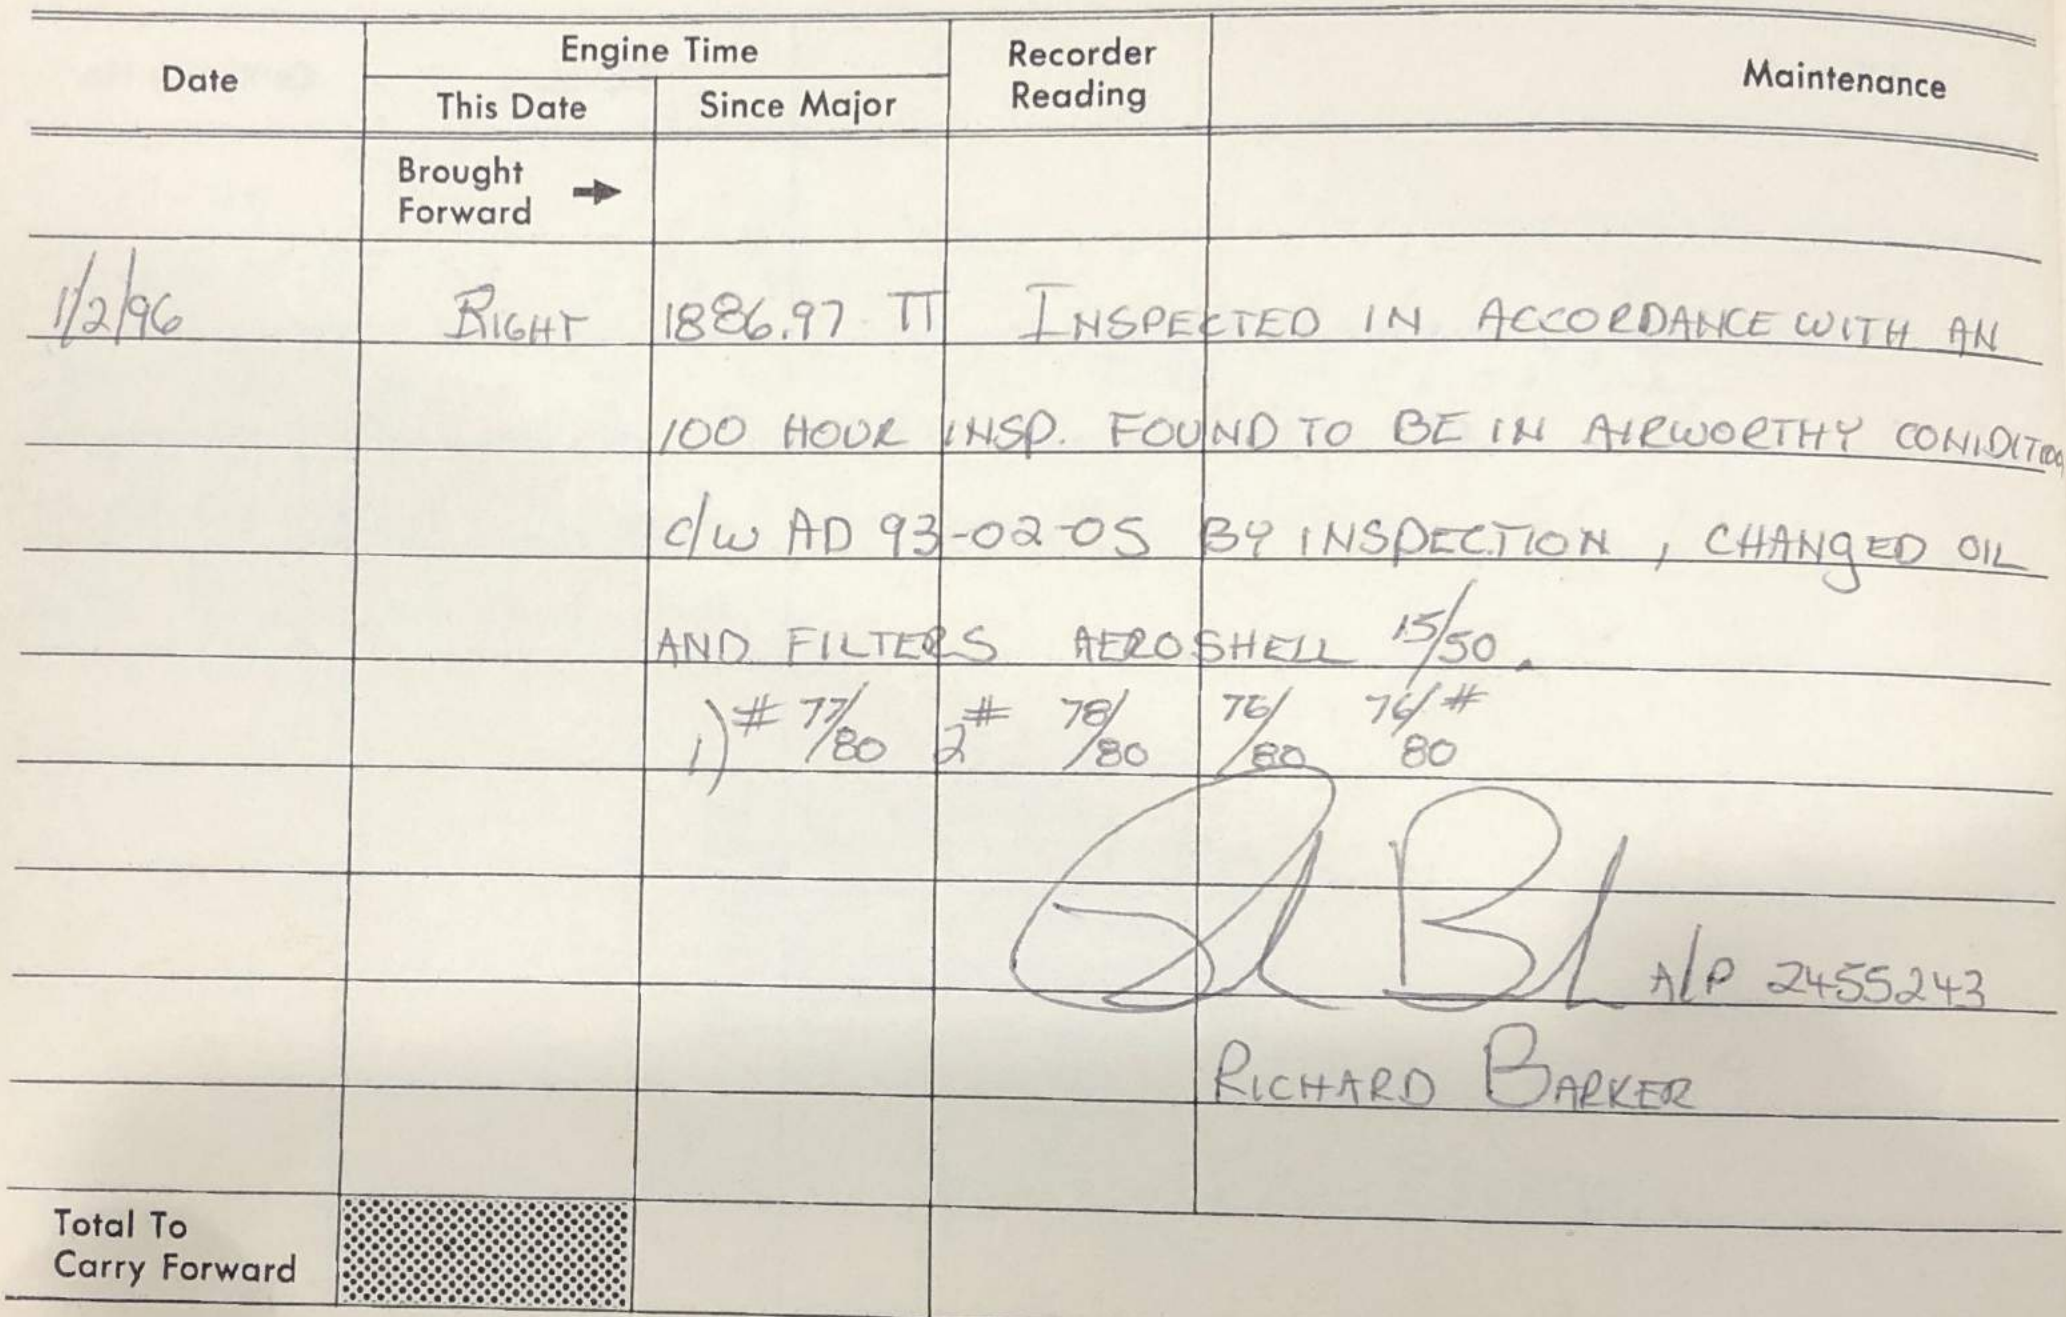 Date Engine Time Recorder Reading Maintenance
This Date Since Major
Brought Forward →
1/2/96 RIGHT 1886.97 TT INSPECTED IN ACCORDANCE WITH AN
100 HOUR INSP. FOUND TO BE IN AIRWORTHY CONIDITION
c/w AD 93-02-05 BY INSPECTION, CHANGED OIL
AND FILTERS AEROSHELL 15/50.
1) # 77/80 2# 78/80 76/80 76/80 #
A/P 2455243
RICHARD BARKER
Total To
Carry Forward